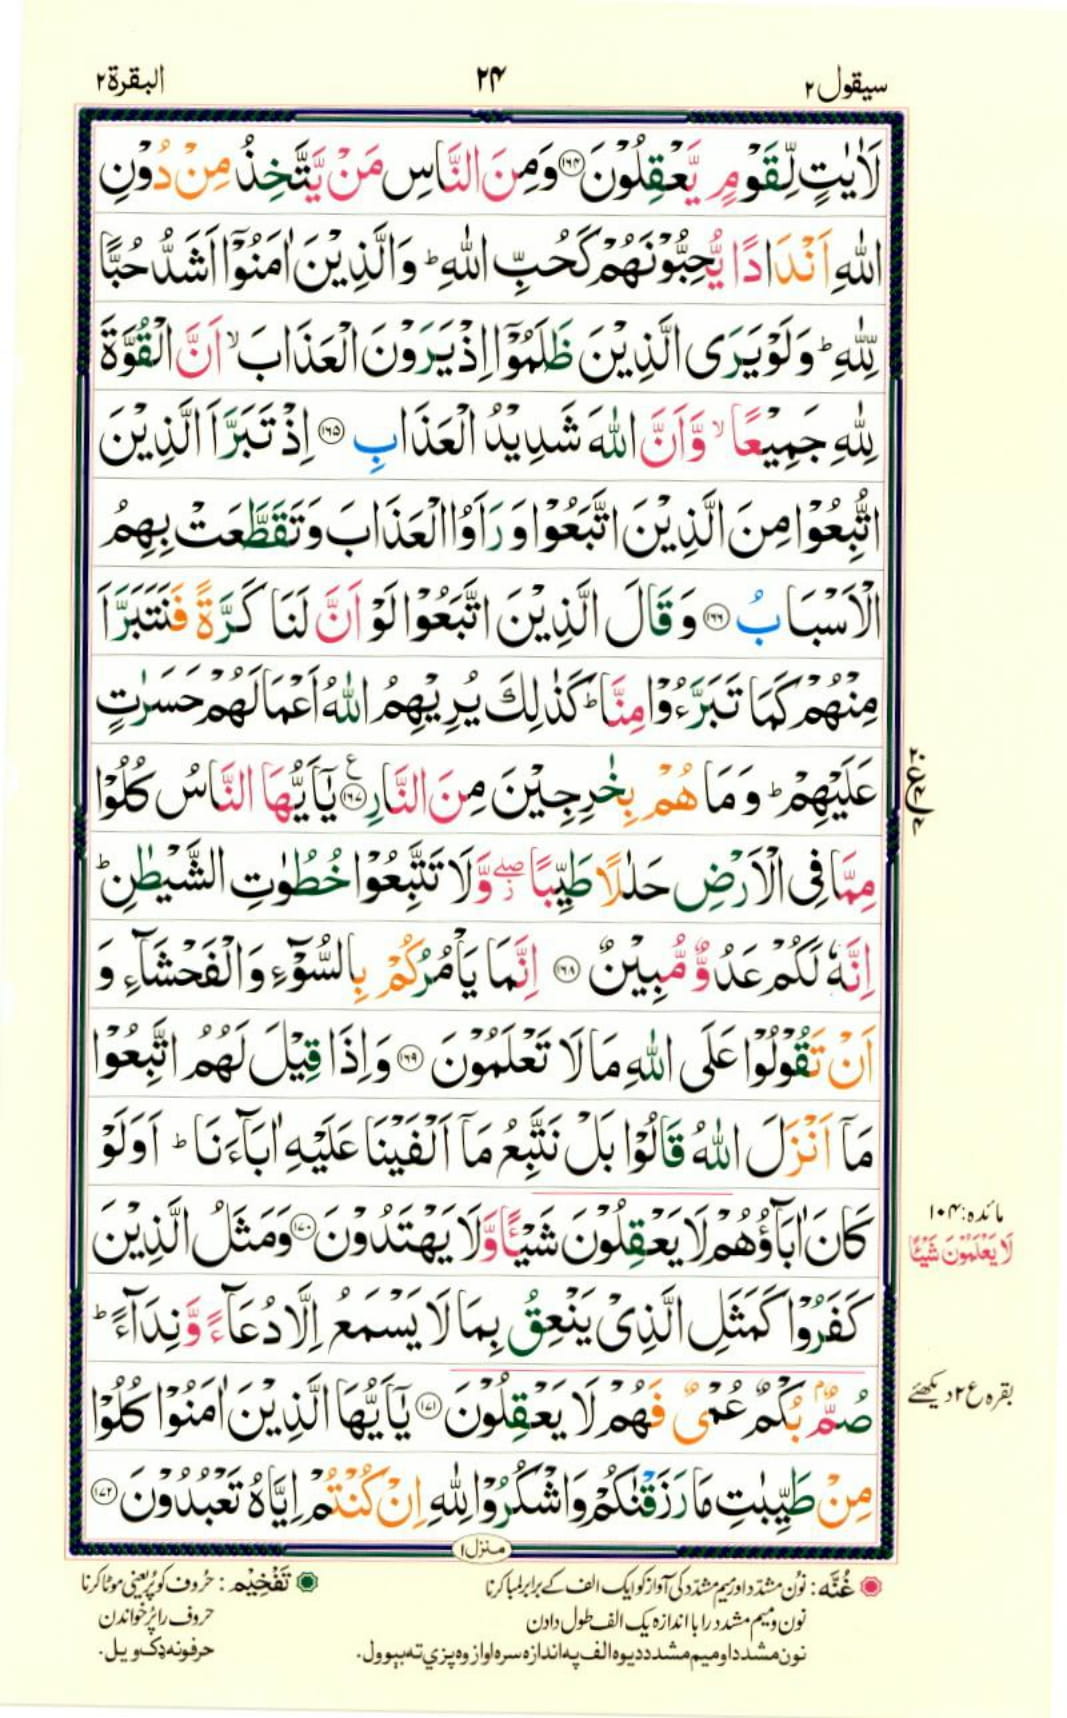 سيقول ٢
٢٤
البقرة ٢
لَاٰيٰتٍ لِّقَوْمٍ يَّعْقِلُوْنَ ﴿١٦٤﴾ وَمِنَ النَّاسِ مَنْ يَّتَّخِذُ مِنْ دُوْنِ
اللّٰهِ اَنْدَادًا يُّحِبُّوْنَهُمْ كَحُبِّ اللّٰهِ ؕ وَالَّذِيْنَ اٰمَنُوْۤا اَشَدُّ حُبًّا
لِّلّٰهِ ؕ وَلَوْ يَرَى الَّذِيْنَ ظَلَمُوْۤا اِذْ يَرَوْنَ الْعَذَابَ ۙ اَنَّ الْقُوَّةَ
لِلّٰهِ جَمِيْعًا ۙ وَّاَنَّ اللّٰهَ شَدِيْدُ الْعَذَابِ ﴿١٦٥﴾ اِذْ تَبَرَّاَ الَّذِيْنَ
اتُّبِعُوْا مِنَ الَّذِيْنَ اتَّبَعُوْا وَرَاَوُا الْعَذَابَ وَتَقَطَّعَتْ بِهِمُ
الْاَسْبَابُ ﴿١٦٦﴾ وَقَالَ الَّذِيْنَ اتَّبَعُوْا لَوْ اَنَّ لَنَا كَرَّةً فَنَتَبَرَّاَ
مِنْهُمْ كَمَا تَبَرَّءُوْا مِنَّا ؕ كَذٰلِكَ يُرِيْهِمُ اللّٰهُ اَعْمَالَهُمْ حَسَرٰتٍ
عَلَيْهِمْ ؕ وَمَا هُمْ بِخٰرِجِيْنَ مِنَ النَّارِ ﴿١٦٧﴾ ع يٰۤاَيُّهَا النَّاسُ كُلُوْا
مِمَّا فِى الْاَرْضِ حَلٰلًا طَيِّبًا ۖز وَّلَا تَتَّبِعُوْا خُطُوٰتِ الشَّيْطٰنِ ؕ
اِنَّهٗ لَكُمْ عَدُوٌّ مُّبِيْنٌ ﴿١٦٨﴾ اِنَّمَا يَاْمُرُكُمْ بِالسُّوْٓءِ وَالْفَحْشَآءِ وَ
اَنْ تَقُوْلُوْا عَلَى اللّٰهِ مَا لَا تَعْلَمُوْنَ ﴿١٦٩﴾ وَاِذَا قِيْلَ لَهُمُ اتَّبِعُوْا
مَاۤ اَنْزَلَ اللّٰهُ قَالُوْا بَلْ نَتَّبِعُ مَاۤ اَلْفَيْنَا عَلَيْهِ اٰبَآءَنَا ؕ اَوَلَوْ
كَانَ اٰبَآؤُهُمْ لَا يَعْقِلُوْنَ شَيْـًٔا وَّلَا يَهْتَدُوْنَ ﴿١٧٠﴾ وَمَثَلُ الَّذِيْنَ
مائدہ: ١٠٤
لَا يَعْلَمُوْنَ شَيْـًٔا
كَفَرُوْا كَمَثَلِ الَّذِىْ يَنْعِقُ بِمَا لَا يَسْمَعُ اِلَّا دُعَآءً وَّنِدَآءً ؕ
صُمٌّۢ بُكْمٌ عُمْىٌ فَهُمْ لَا يَعْقِلُوْنَ ﴿١٧١﴾ يٰۤاَيُّهَا الَّذِيْنَ اٰمَنُوْا كُلُوْا
بقرہ ع ٢ دیکھئے
مِنْ طَيِّبٰتِ مَا رَزَقْنٰكُمْ وَاشْكُرُوْا لِلّٰهِ اِنْ كُنْتُمْ اِيَّاهُ تَعْبُدُوْنَ ﴿١٧٢﴾
منزل ١
غُنَّه: نون مشدد اور میم مشدد کی آواز کو ایک الف کے برابر لمبا کرنا
نون و میم مشدد را با اندازه یک الف طول دادن
نون مشدد او میم مشدد دیوه الف په اندازه سره اواز وه پزي ته بېوول.
تَفْخِيْم: حروف کو پُر یعنی موٹا کرنا
حروف را پُر خواندن
حرفونه ډک ویل.